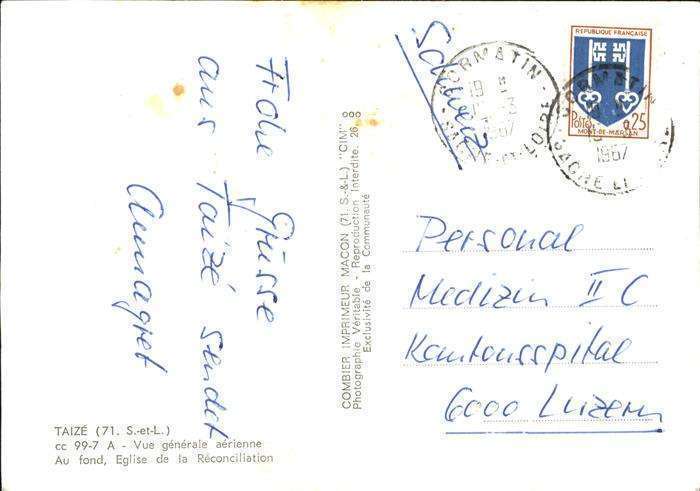 Frohe Grüsse
aus Taizé sendet
Annagret
Schweiz
RÉPUBLIQUE FRANÇAISE
Postes 0,25
MONT-DE-MARSAN
CORMATIN
19
1967
CORMATIN
1967
SAONE ET LOIRE
Personal
Medizin II C
Kantonsspital
6000 Luzern
COMBIER IMPRIMEUR MACON (71. S.-&-L.) "CIM"
Photographie Véritable - Reproduction Interdite. 26
Exclusivité de la Communauté
TAIZÉ (71. S.-et-L.)
cc 99-7 A - Vue générale aérienne
Au fond, Eglise de la Réconciliation